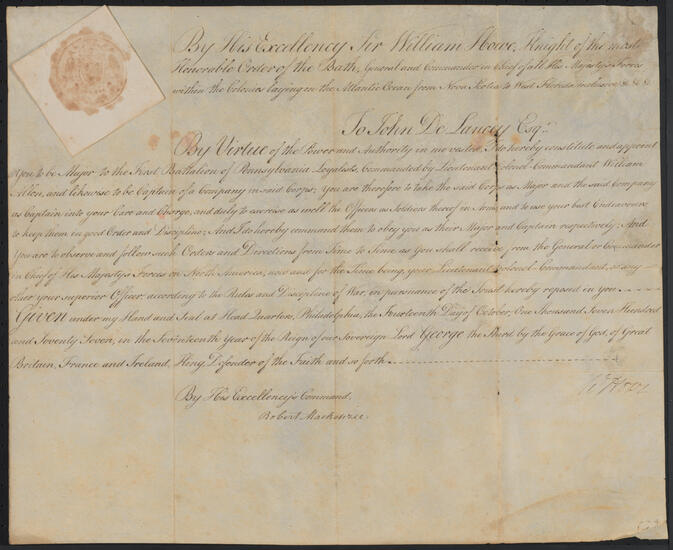 By His Excellency Sir William Howe, Knight of the most
Honorable Order of the Bath, General and Commander in Chief of all His Majesty's Forces
within the Colonies laying in the Atlantic Ocean from Nova Scotia to West Florida inclusive &c &c &c
To John De Lancey Esqr.
By Virtue of the Power and Authority in me vested, I do hereby constitute and appoint
You to be Major to the First Battalion of Pennsylvania Loyalists, Commanded by Lieutenant Colonel Commandant William
Allen, and likewise to be Captain of a Company in said Corps; You are therefore to take the said Corps as Major and the said Company
as Captain into your Care and Charge, and duly to exercise as well the Officers as Soldiers thereof in Arms, and to use your best Endeavours
to keep them in good Order and Discipline; And I do hereby command them to obey you as their Major and Captain respectively; And
You are to observe and follow such Orders and Directions from Time to Time as You shall receive from the General or Commander
in Chief of His Majesty's Forces in North America, now and for the Time being, your Lieutenant Colonel Commandant, or any
other your superior Officer, according to the Rules and Discipline of War, in pursuance of the Trust hereby reposed in you
Given under my Hand and Seal at Head Quarters, Philadelphia, the Fourteenth Day of October, One Thousand Seven Hundred
and Seventy Seven, in the Seventeenth Year of the Reign of our Sovereign Lord George the Third by the Grace of God, of Great
Britain, France and Ireland, King, Defender of the Faith and so forth
W Howe
By His Excellency's Command,
Robert Mackenzie